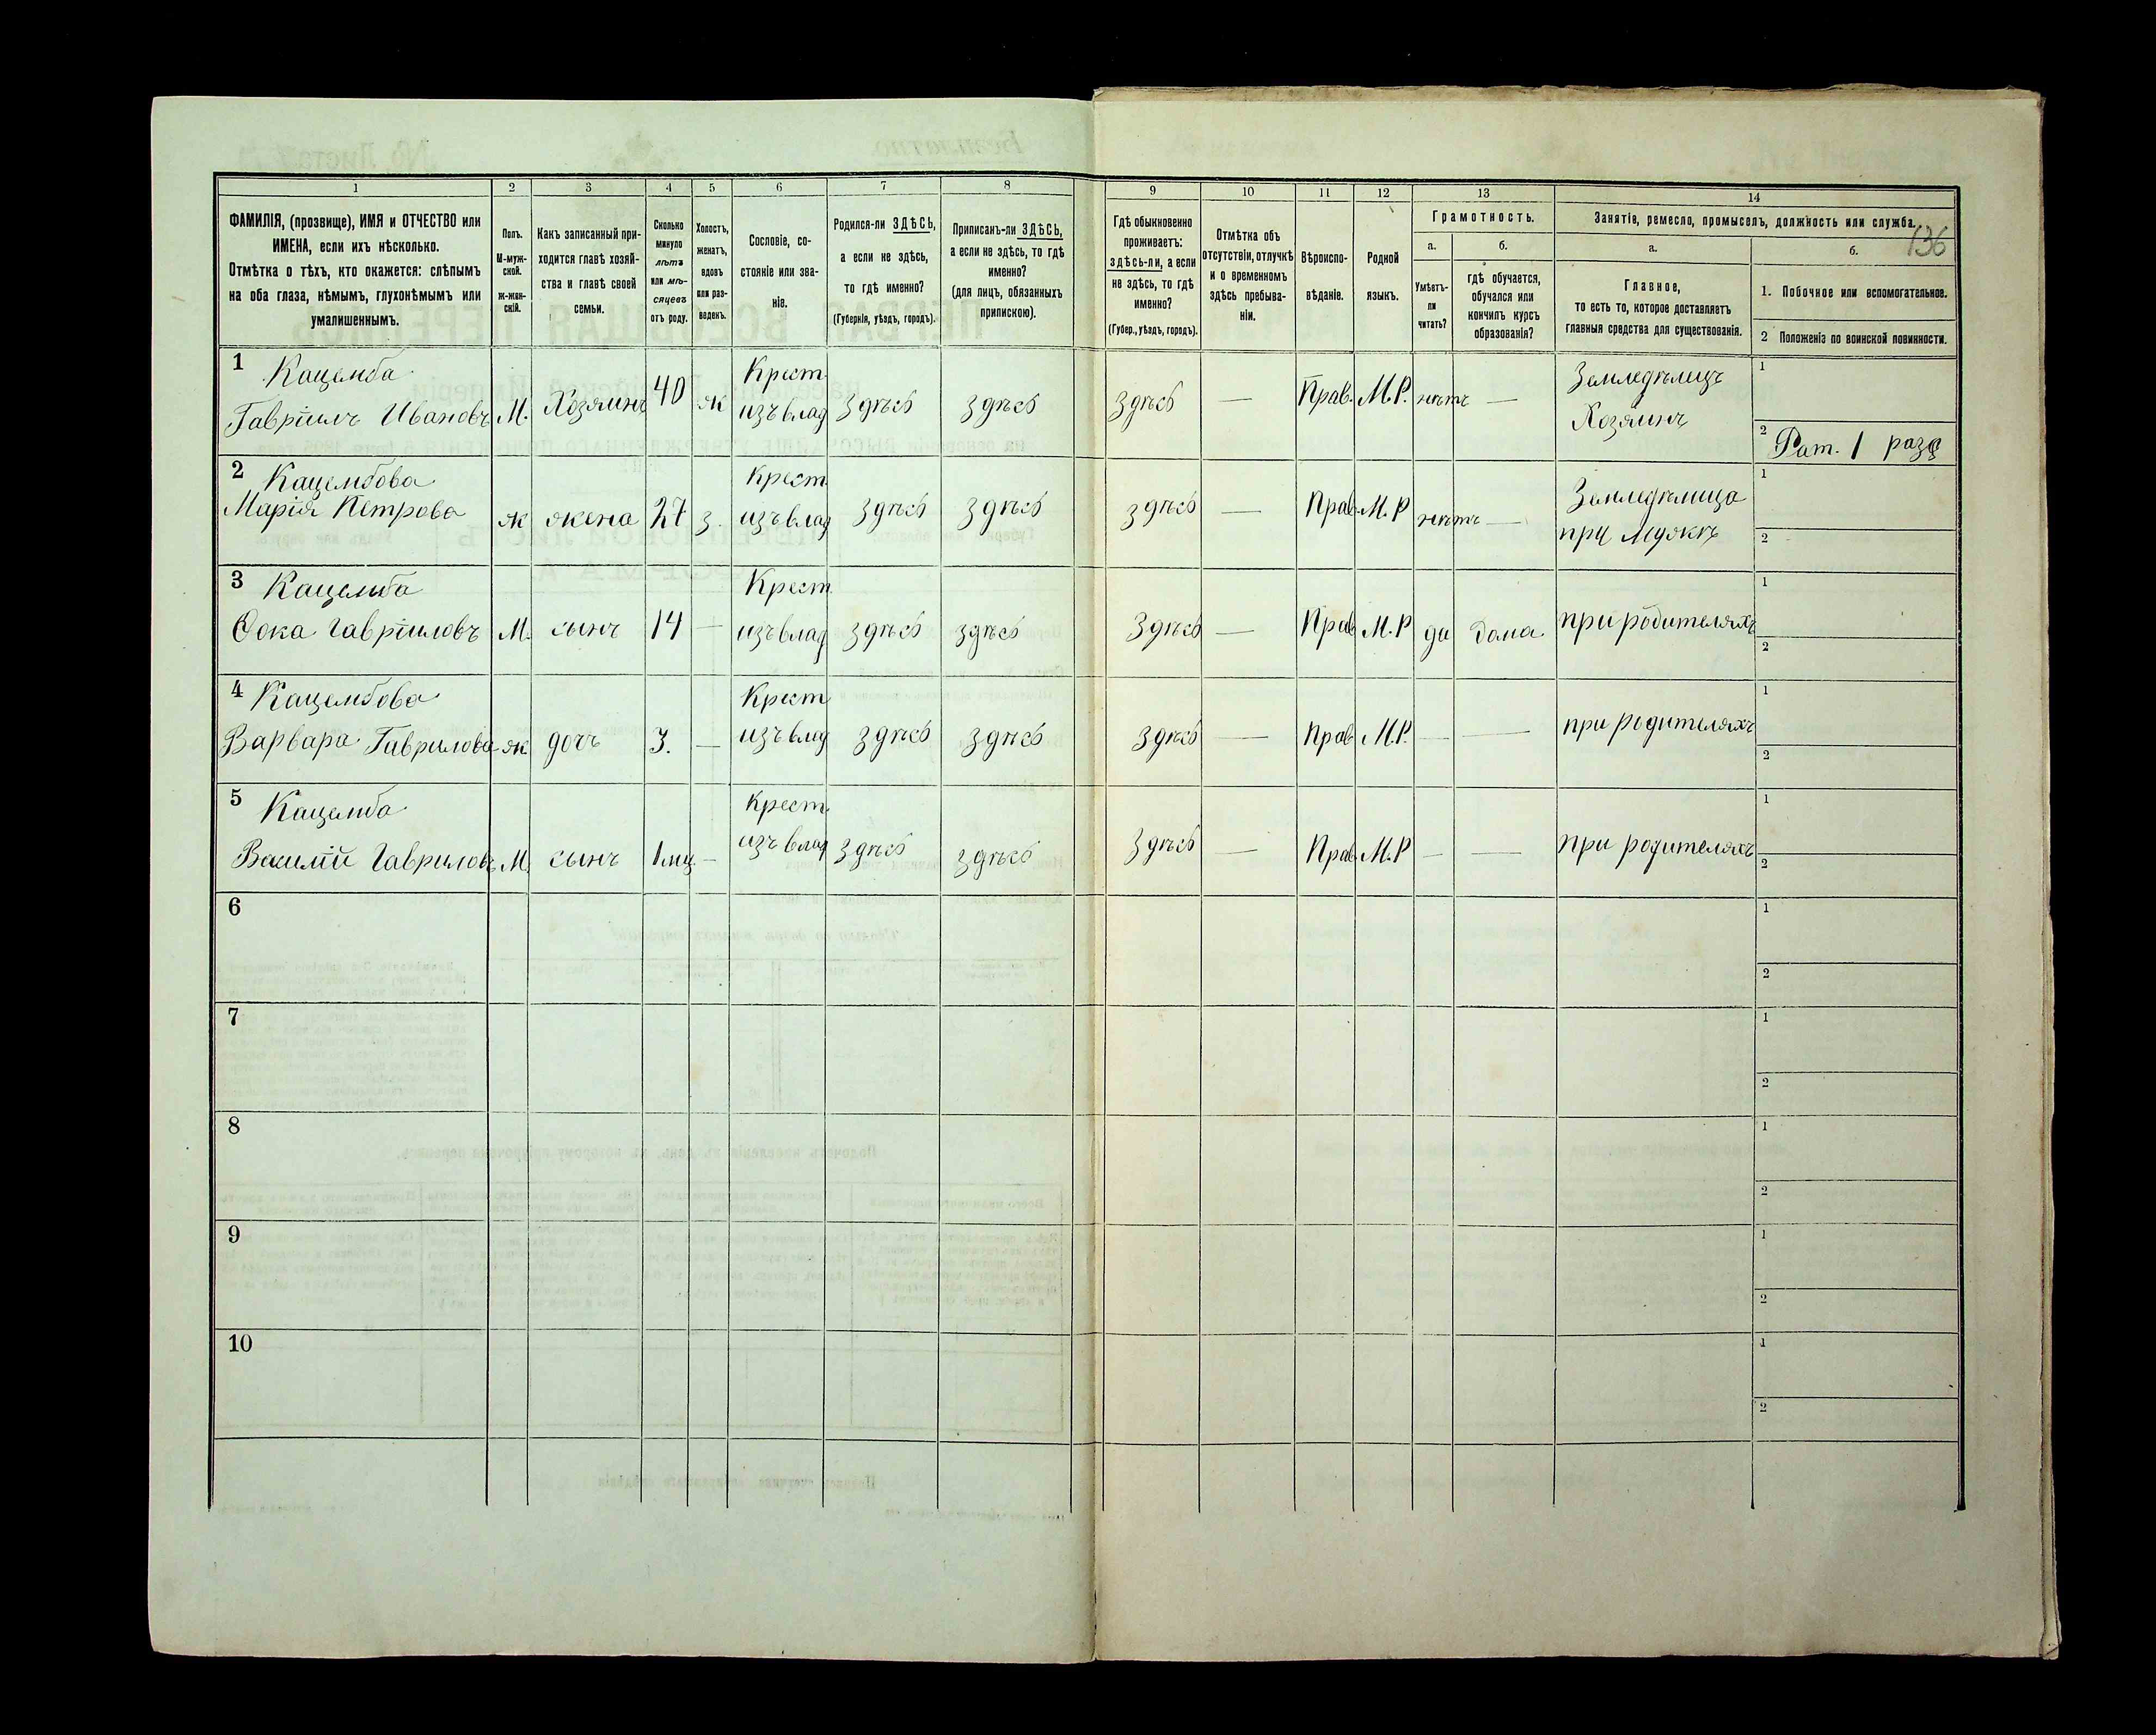 136
1 2 3 4 5 6 7 8 9 10 11 12 13 14
ФАМИЛІЯ, (прозвище), ИМЯ и ОТЧЕСТВО или
ИМЕНА, если ихъ нѣсколько.
Отмѣтка о тѣхъ, кто окажется: слѣпымъ
на оба глаза, нѣмымъ, глухонѣмымъ или
умалишеннымъ.
Полъ.
М-муж-
ской.
Ж-жен-
скій.
Какъ записанный при-
ходится главѣ хозяй-
ства и главѣ своей
семьи.
Сколько
минуло
лѣтъ
или мѣ-
сяцевъ
отъ роду.
Холостъ,
женатъ,
вдовъ
или раз-
веденъ.
Сословіе, со-
стояніе или зва-
ніе.
Родился-ли ЗДѢСЬ,
а если не здѣсь,
то гдѣ именно?
(Губернія, уѣздъ, городъ).
Приписанъ-ли ЗДѢСЬ,
а если не здѣсь, то гдѣ
именно?
(для лицъ, обязанныхъ
припискою).
Гдѣ обыкновенно
проживаетъ:
здѣсь-ли, а если
не здѣсь, то гдѣ
именно?
(Губер., уѣздъ, городъ).
Отмѣтка объ
отсутствіи, отлучкѣ
и о временномъ
здѣсь пребыва-
ніи.
Вѣроиспо-
вѣданіе.
Родной
языкъ.
Грамотность.
а.
Умѣетъ-
ли
читать?
б.
гдѣ обучается,
обучался или
кончилъ курсъ
образованія?
Занятіе, ремесло, промыселъ, должность или служба.
а.
Главное,
то есть то, которое доставляетъ
главныя средства для существованія.
б.
1. Побочное или вспомогательное.
2 Положеніе по воинской повинности.
1 Кацемба Крест. Земледѣлецъ 1
Гавріилъ Ивановъ М. Хозяинъ 40 ж изъ влад здѣсь здѣсь здѣсь — Прав. М.Р. нѣтъ — Хозяинъ
2 Рат. 1 разр
2 Кацембова Крест. Земледѣлица 1
Марія Петрова ж жена 27 з. изъ влад здѣсь здѣсь здѣсь — Прав. М.Р нѣтъ — при мужѣ 2
3 Кацемба Крест. 1
Фока Гавріиловъ М. сынъ 14 — изъ влад здѣсь здѣсь здѣсь — Прав М.Р да дома при родителяхъ 2
4 Кацембова Крест 1
Варвара Гаврилова ж дочь 3. — изъ влад здѣсь здѣсь здѣсь — Прав М.Р. — — при родителяхъ 2
5 Кацемба Крест. 1
Василій Гавриловъ М. сынъ 1 мц. — изъ влад здѣсь здѣсь здѣсь — Прав. М.Р — — при родителяхъ 2
6 1
2
7 1
2
8 1
2
9 1
2
10 1
2